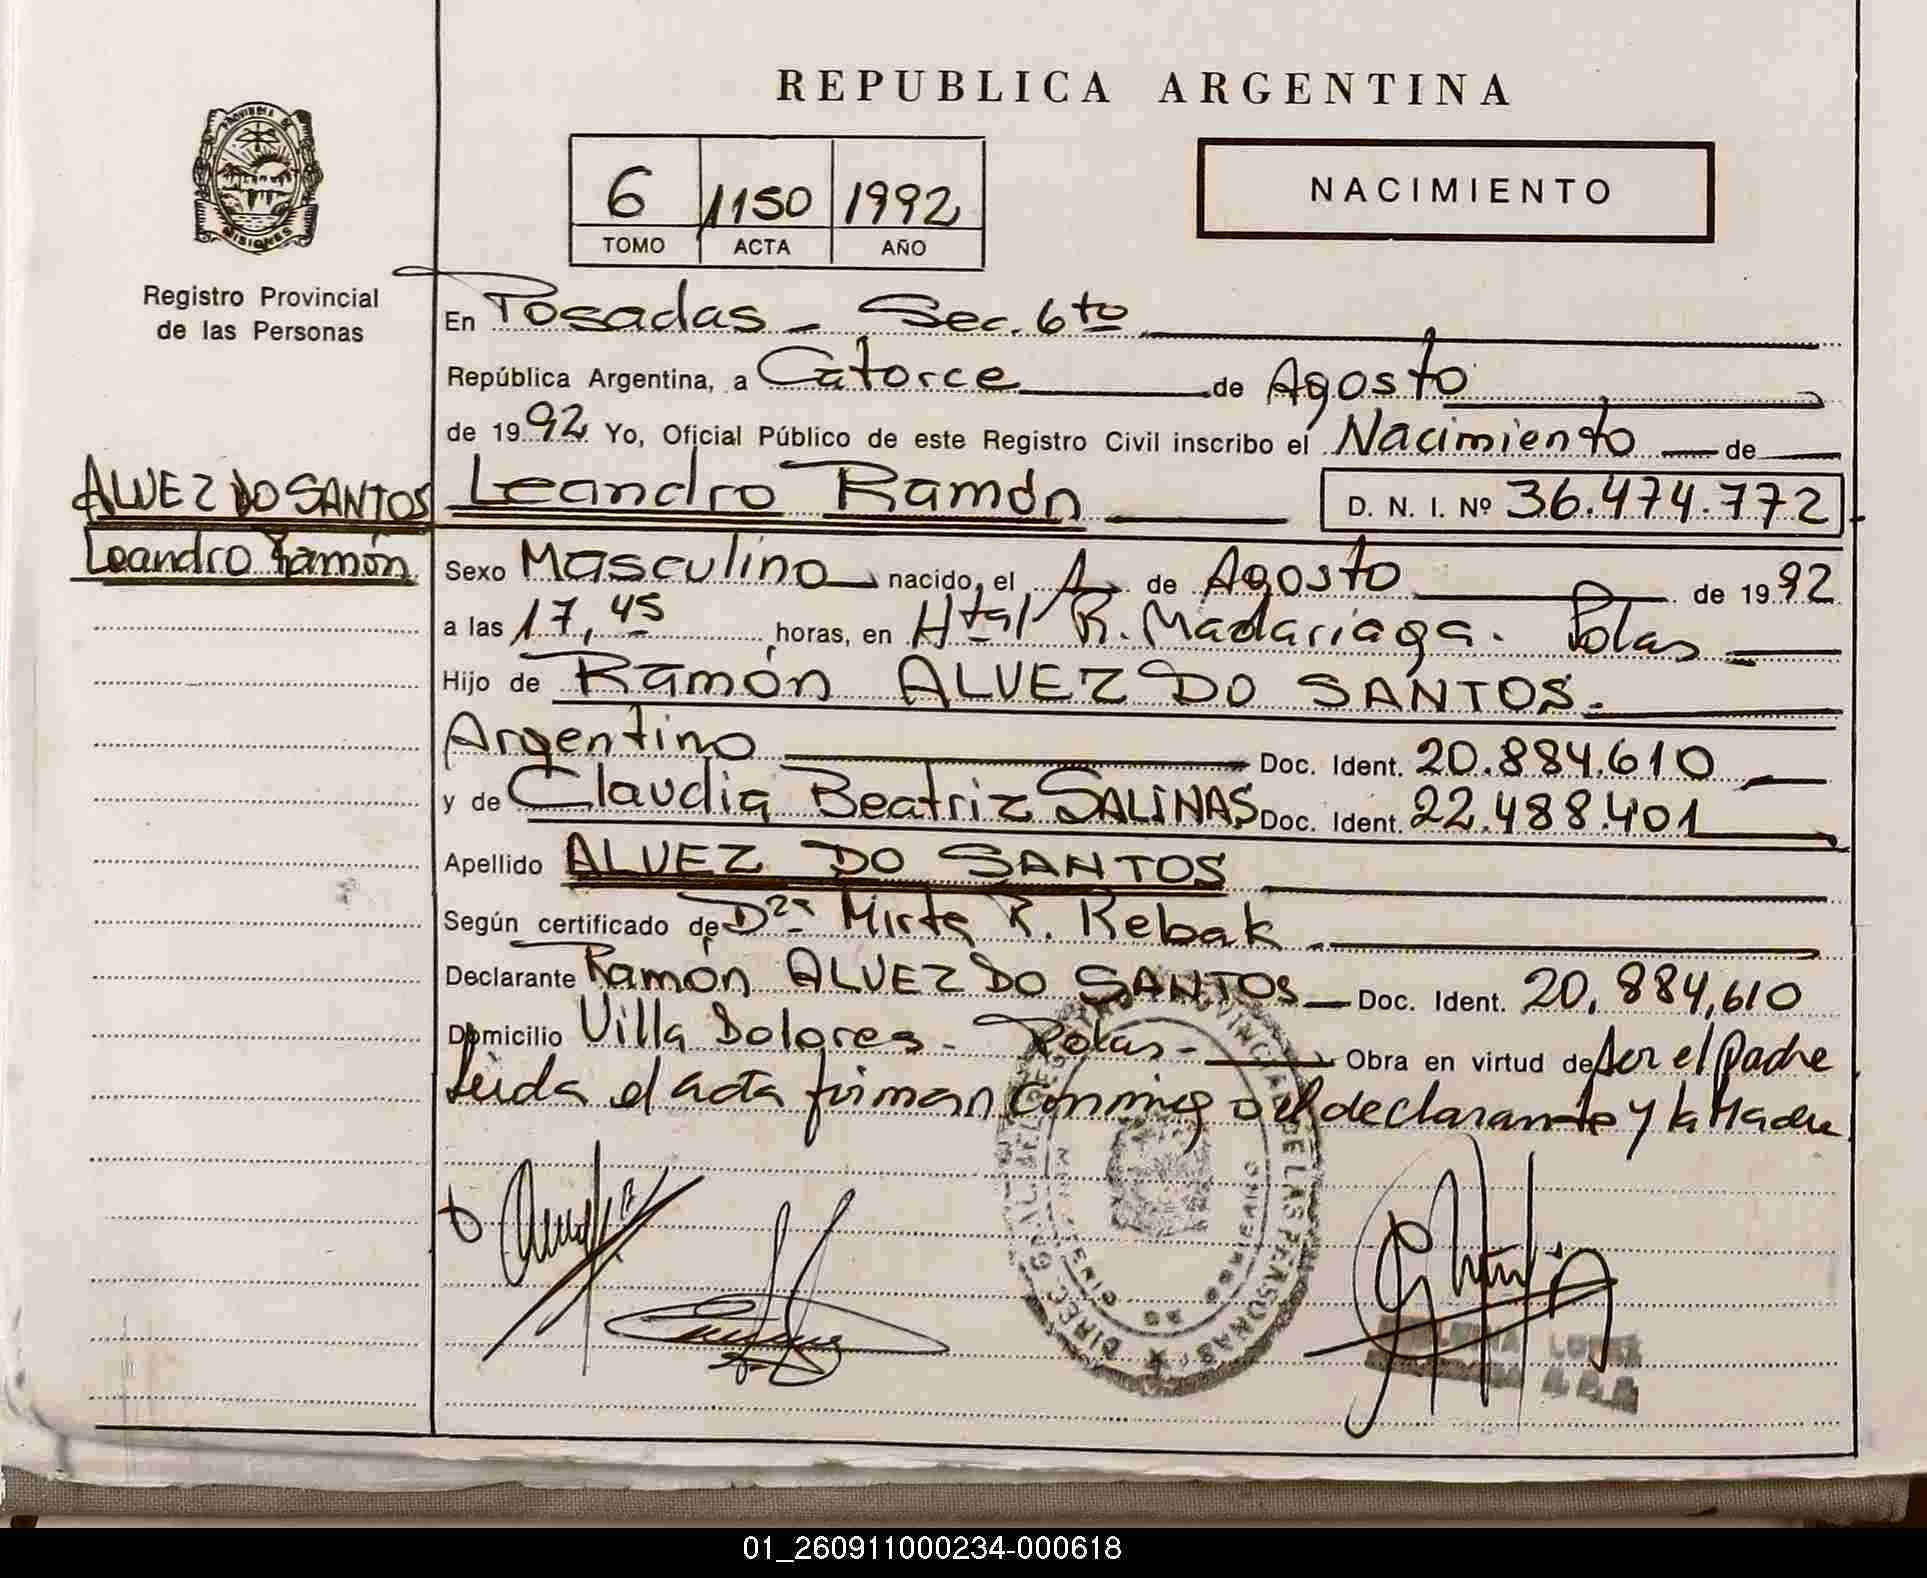 REPUBLICA ARGENTINA
PROVINCIA DE
MISIONES
Registro Provincial
de las Personas
6 1150 1992
TOMO ACTA AÑO
NACIMIENTO
En Posadas - Sec. 6to
República Argentina, a Catorce de Agosto
de 1992 Yo, Oficial Público de este Registro Civil inscribo el Nacimiento de
ALVEZ DO SANTOS
Leandro Ramón
Leandro Ramón D. N. I. Nº 36.474.772
Sexo Masculino nacido, el 1 de Agosto de 1992
a las 17,45 horas, en Htal R. Madariaga. Pdas
Hijo de Ramón ALVEZ DO SANTOS.
Argentino Doc. Ident. 20.884.610
y de Claudia Beatriz SALINAS Doc. Ident. 22.488.401
Apellido ALVEZ DO SANTOS
Según certificado de Dra. Mirta R. Rebak
Declarante Ramón ALVEZ DO SANTOS Doc. Ident. 20,884,610
Domicilio Villa Dolores - Pdas - Obra en virtud de ser el Padre
Leida el acta firman conmigo el declarante y la Madre
LOPEZ
01_260911000234-000618